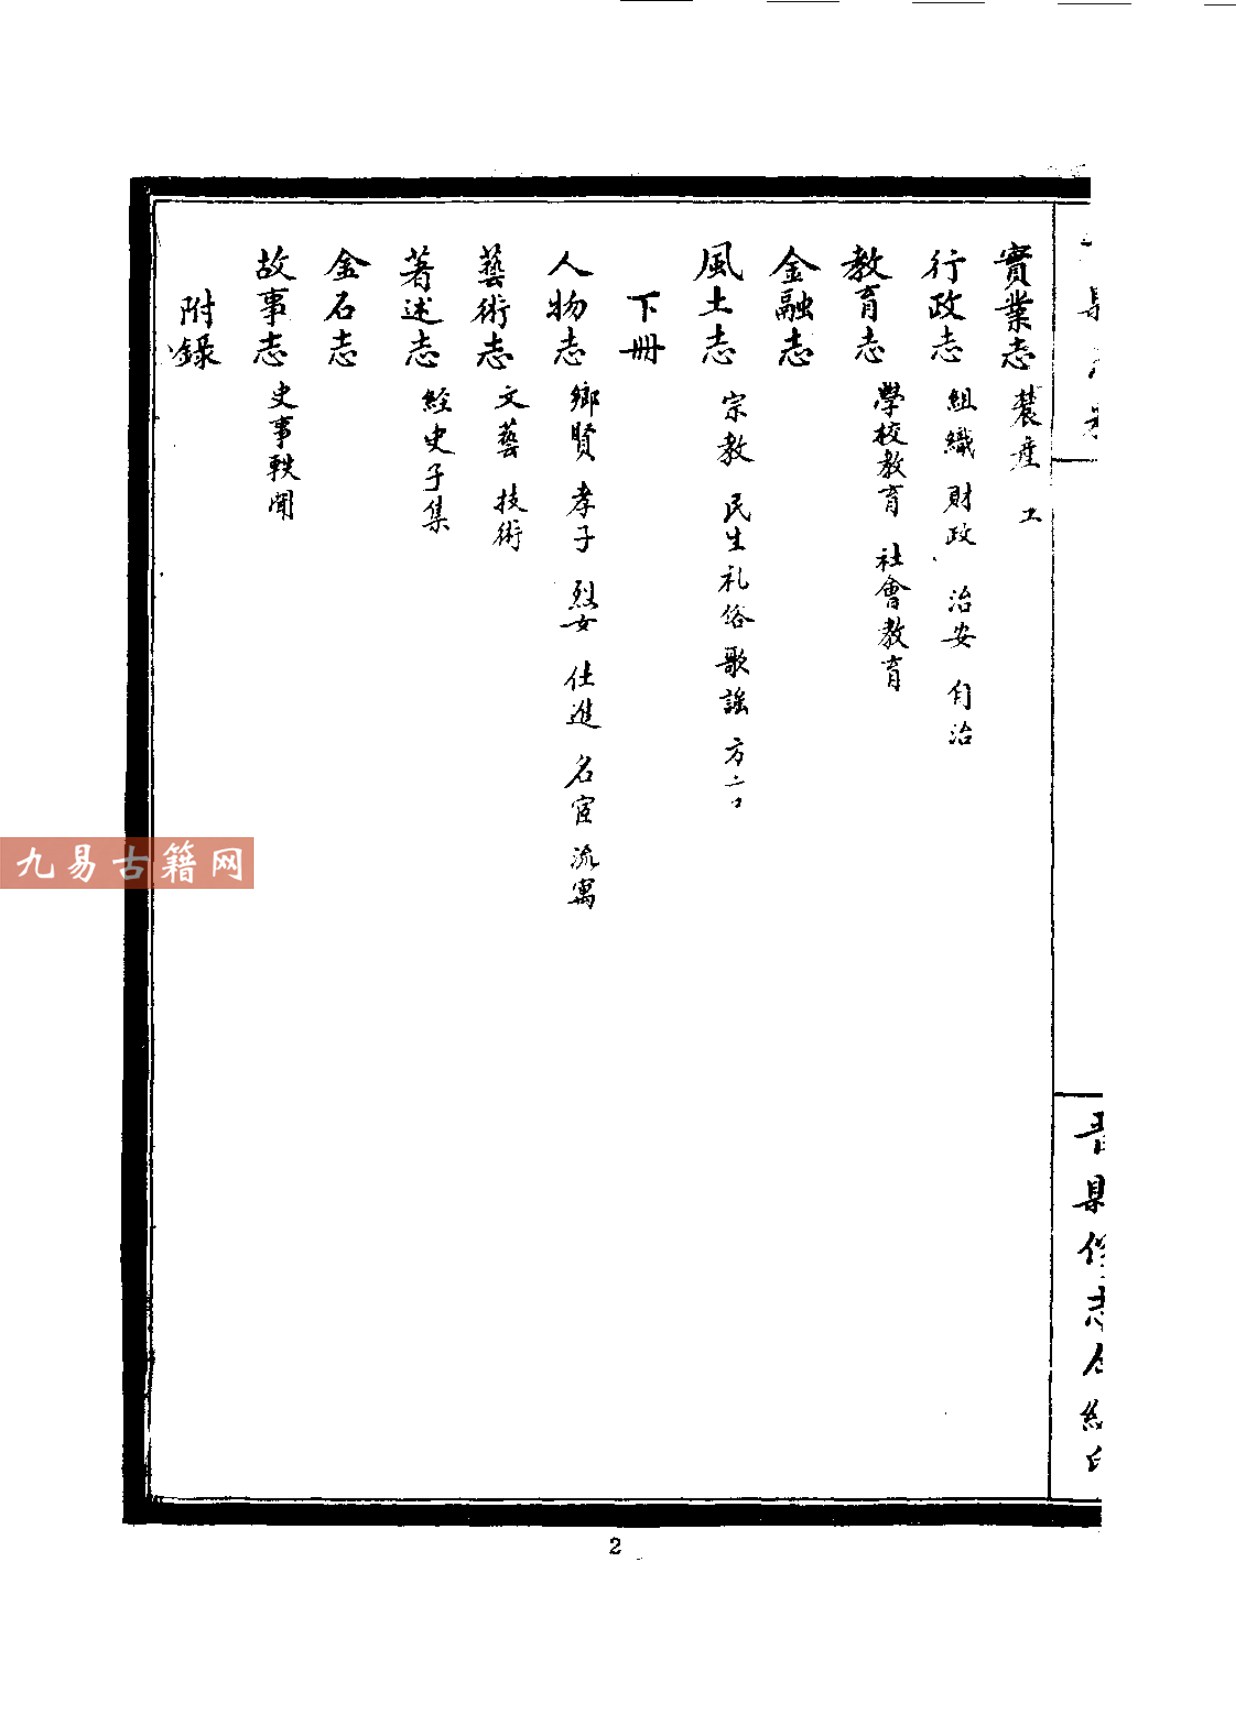 實業志 農產 工
行政志 組織 財政 治安 自治
教育志 學校教育 社會教育
金融志
風土志 宗教 民生 礼俗 歌謡 方言
下冊
人物志 鄉賢 孝子 烈女 仕進 名宦 流寓
藝術志 文藝 技術
著述志 經史子集
金石志
故事志 史事軼聞
附錄
九易古籍网
2